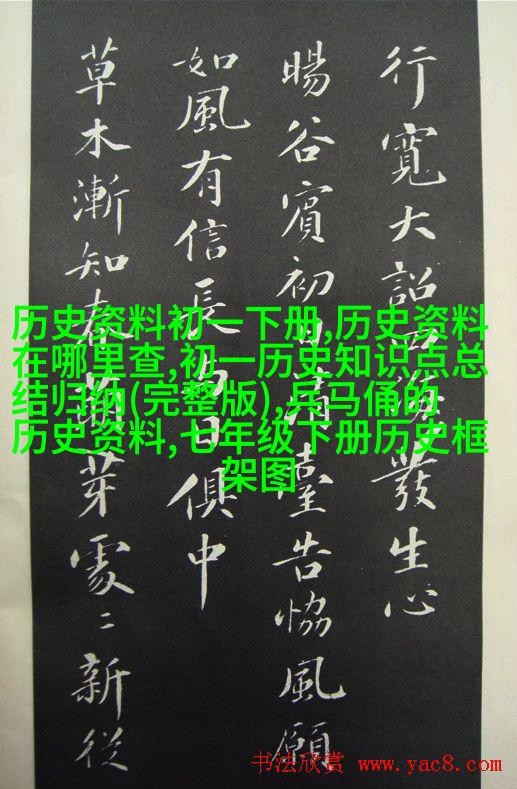 行寬大詔四海發生心
暘谷賓初日清臺告協風願
如風有信長與日俱中
草木漸知春萌芽處〻新從
历史资料初一下册,历史资料
在哪里查,初一历史知识点总
结归纳(完整版),兵马俑的
历史资料,七年级下册历史框
架图
书法欣赏 www.yac8.com